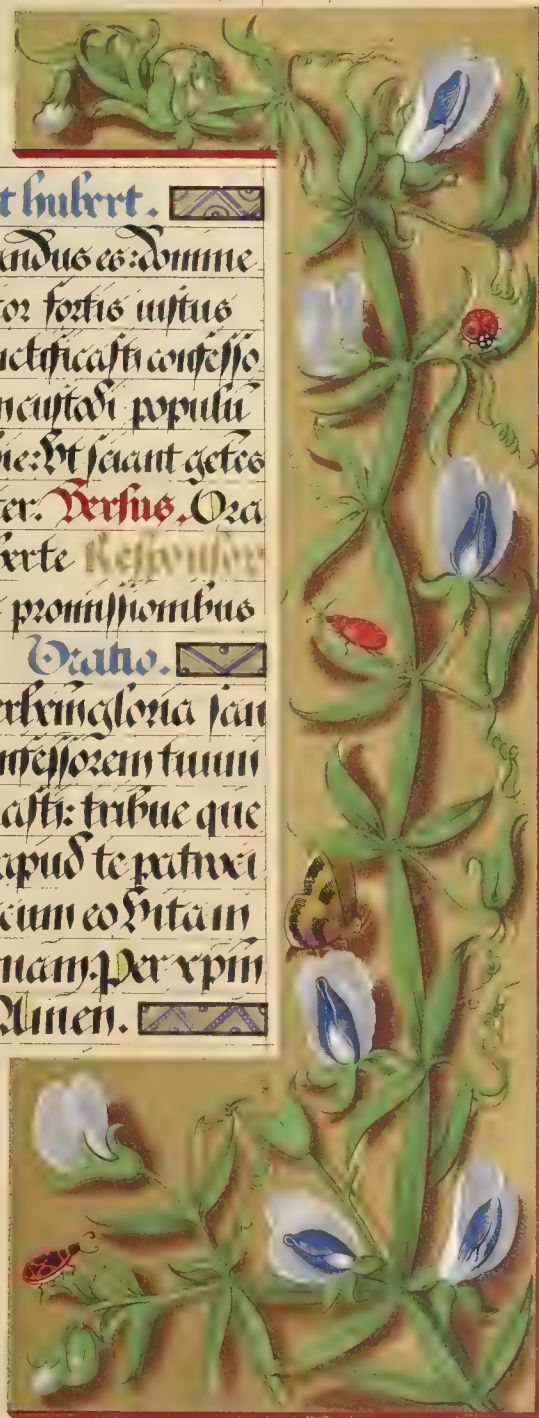 t hubert.
andus es: domine
tor fortis iustus
nctificasti confesso
n custodi populū
me: Vt sciant gētes
ter. Versus. Ora
berte Responsor
promissionibus
Oratio.
gloria san
nfessorem tuum
asti: tribue que
apud te
cum eo vitam
nam. Per xpm̄
Amen.